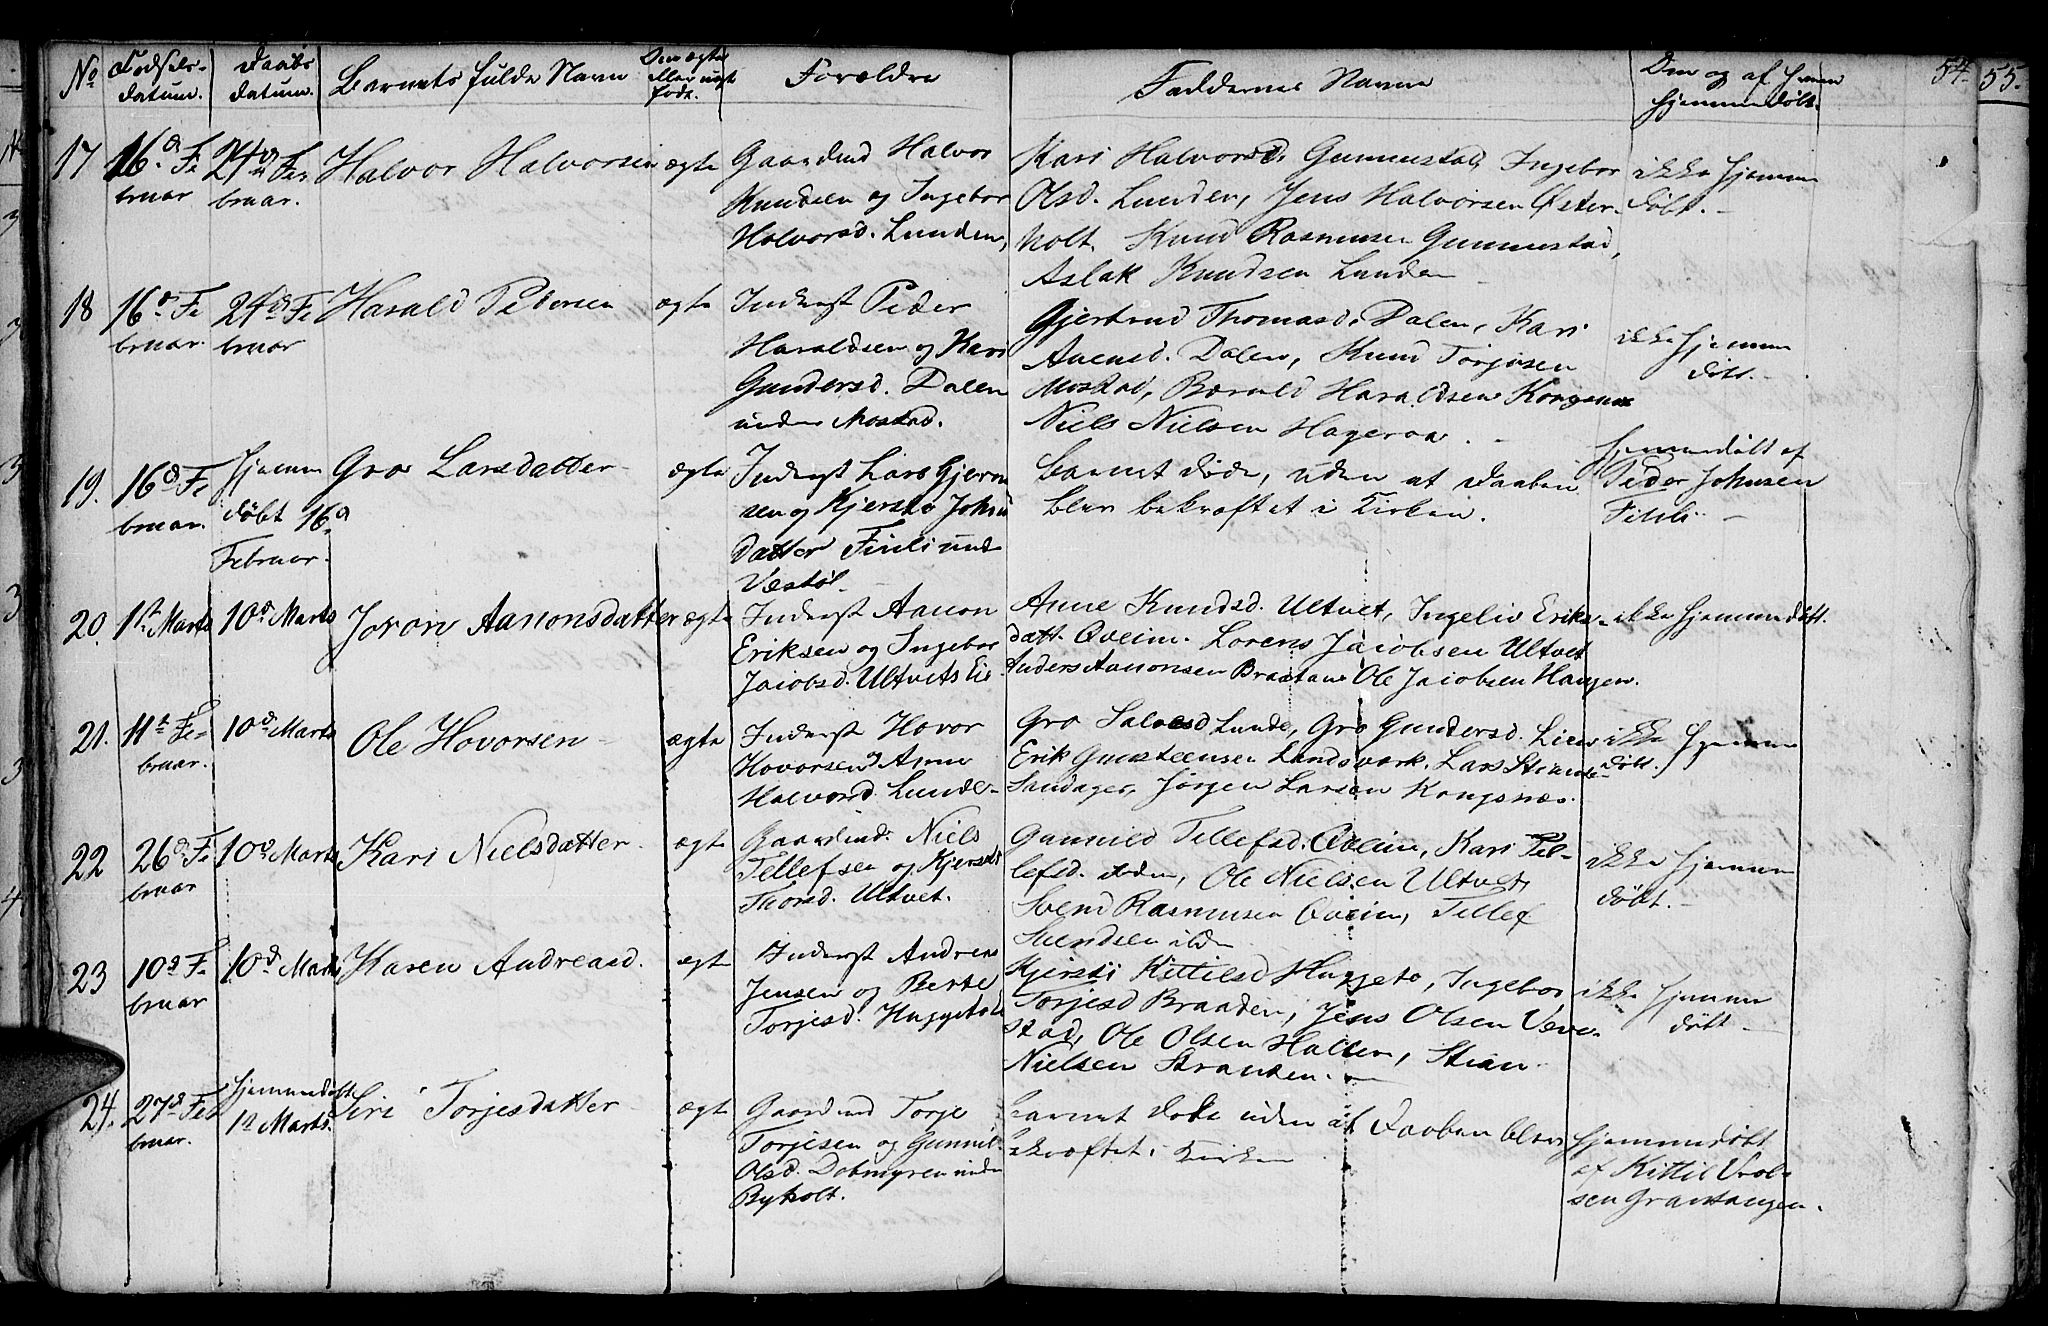 No
Fødsels-
datum.
Daabs
datum.
Barnets fulde Navn
Om ægte
eller uægte
født.
Forældre
Faddernes Navne
Om og af hvem
hjemmedøbt.
54.
55.
17
16d Fe
bruar
24d Fe
bruar.
Halvor Halvorsen
ægte
Gaardmd Halvor
Knudsen og Ingebor
Halvorsd. Lunden,
Kari Halvorsd. Gunnestad, Ingebor
Olsd. Lunden, Jens Halvorsen Øster-
holt. Knud Rasmusen Gunnestad,
Aslak Knudsen Lunden
ikke hjemme
døbt. -
18
16d Fe
bruar.
24d Fe
bruar
Harald Pedersen
ægte
Inderst Peder
Haraldsen og Kari
Gundersd. Dalen
under Mostad.
Gjertrud Thomasd. Dalen, Kari
Avensd. Dalen, Knud Torjusen
Mostad, Harald Haraldsen
Niels Nielsen Hageraa. -
ikke hjemme
døbt. -
19.
16d Fe
bruar.
hjemme
døbt 16d
Februar.
Gro Larsdatter
ægte
Inderst Lars Gjerm
sen og Kjersti Johns
datter Finli und
Vestøl.
Barnet døde, uden at Daaben
blev bekræftet i Kirken.
hjemmedøbt af
Peder Johnsen
Finli -
20.
1ste Marts
10d Marts
Joron Aanonsdatter
ægte
Inderst Aanon
Eriksen og Ingebor
Jacobsd. Ultvets Eie
Anne Knudsd. Ultvet, Ingeliv Eriks-
datt. Qveim. Lorens Jacobsen Ultvet
Anders Aanonsen Braatane Ole Jacobsen Haugen.
ikke hjemmedøbt.
21.
11te Fe-
bruar.
10d Marts
Ole Hovorsen
ægte
Inderst Hovor
Hovorsen og Anne
Halvorsd. Lunde-
Gro Salvesd Lunde, Gro Gundersd. Lien
Erik Gunsteensen Landsverk. Lars
Sandager, Jørgen Larsen Kongsnæs.
ikke hjemme
døbt.
22
26d Fe
bruar
10d Marts
Kari Nielsdatter
ægte
Gaardmd. Niels
Tellefsen og Kjersti
Thorsd. Ultvet.
Gunnild Tellefsd. Qveim, Kari Tel-
lefsd. ibden, Ole Nielsen Ultvet,
Svend Rasmusen Qveim, Tellef
Svendsen ibdm
ikke hjemme
døbt. -
23
10d Fe
bruar
10d Marts
Karen Andreasd.
ægte
Inderst Andreas
Jensen og Berte
Torjesd. Huggeto
Kjersti Kittilsd Huggeto, Ingebor
Torjesd Braaden, Jens Olsen Veve-
stad, Ole Olsen Hallen, Stian
Nielsen Stranden. -
ikke hjemme
døbt -
24.
27d Fe
bruar.
hjemmedøbt
1ste Marts.
Siri Torjesdatter
ægte
Gaardmd Torje
Torjesen og Gunnil
Olsd. Dobmyren under
Byholt.
Barnet døde uden at Daaben blev
bekræftet i Kirken
hjemmedøbt
af Kittil
sen Grantangen.